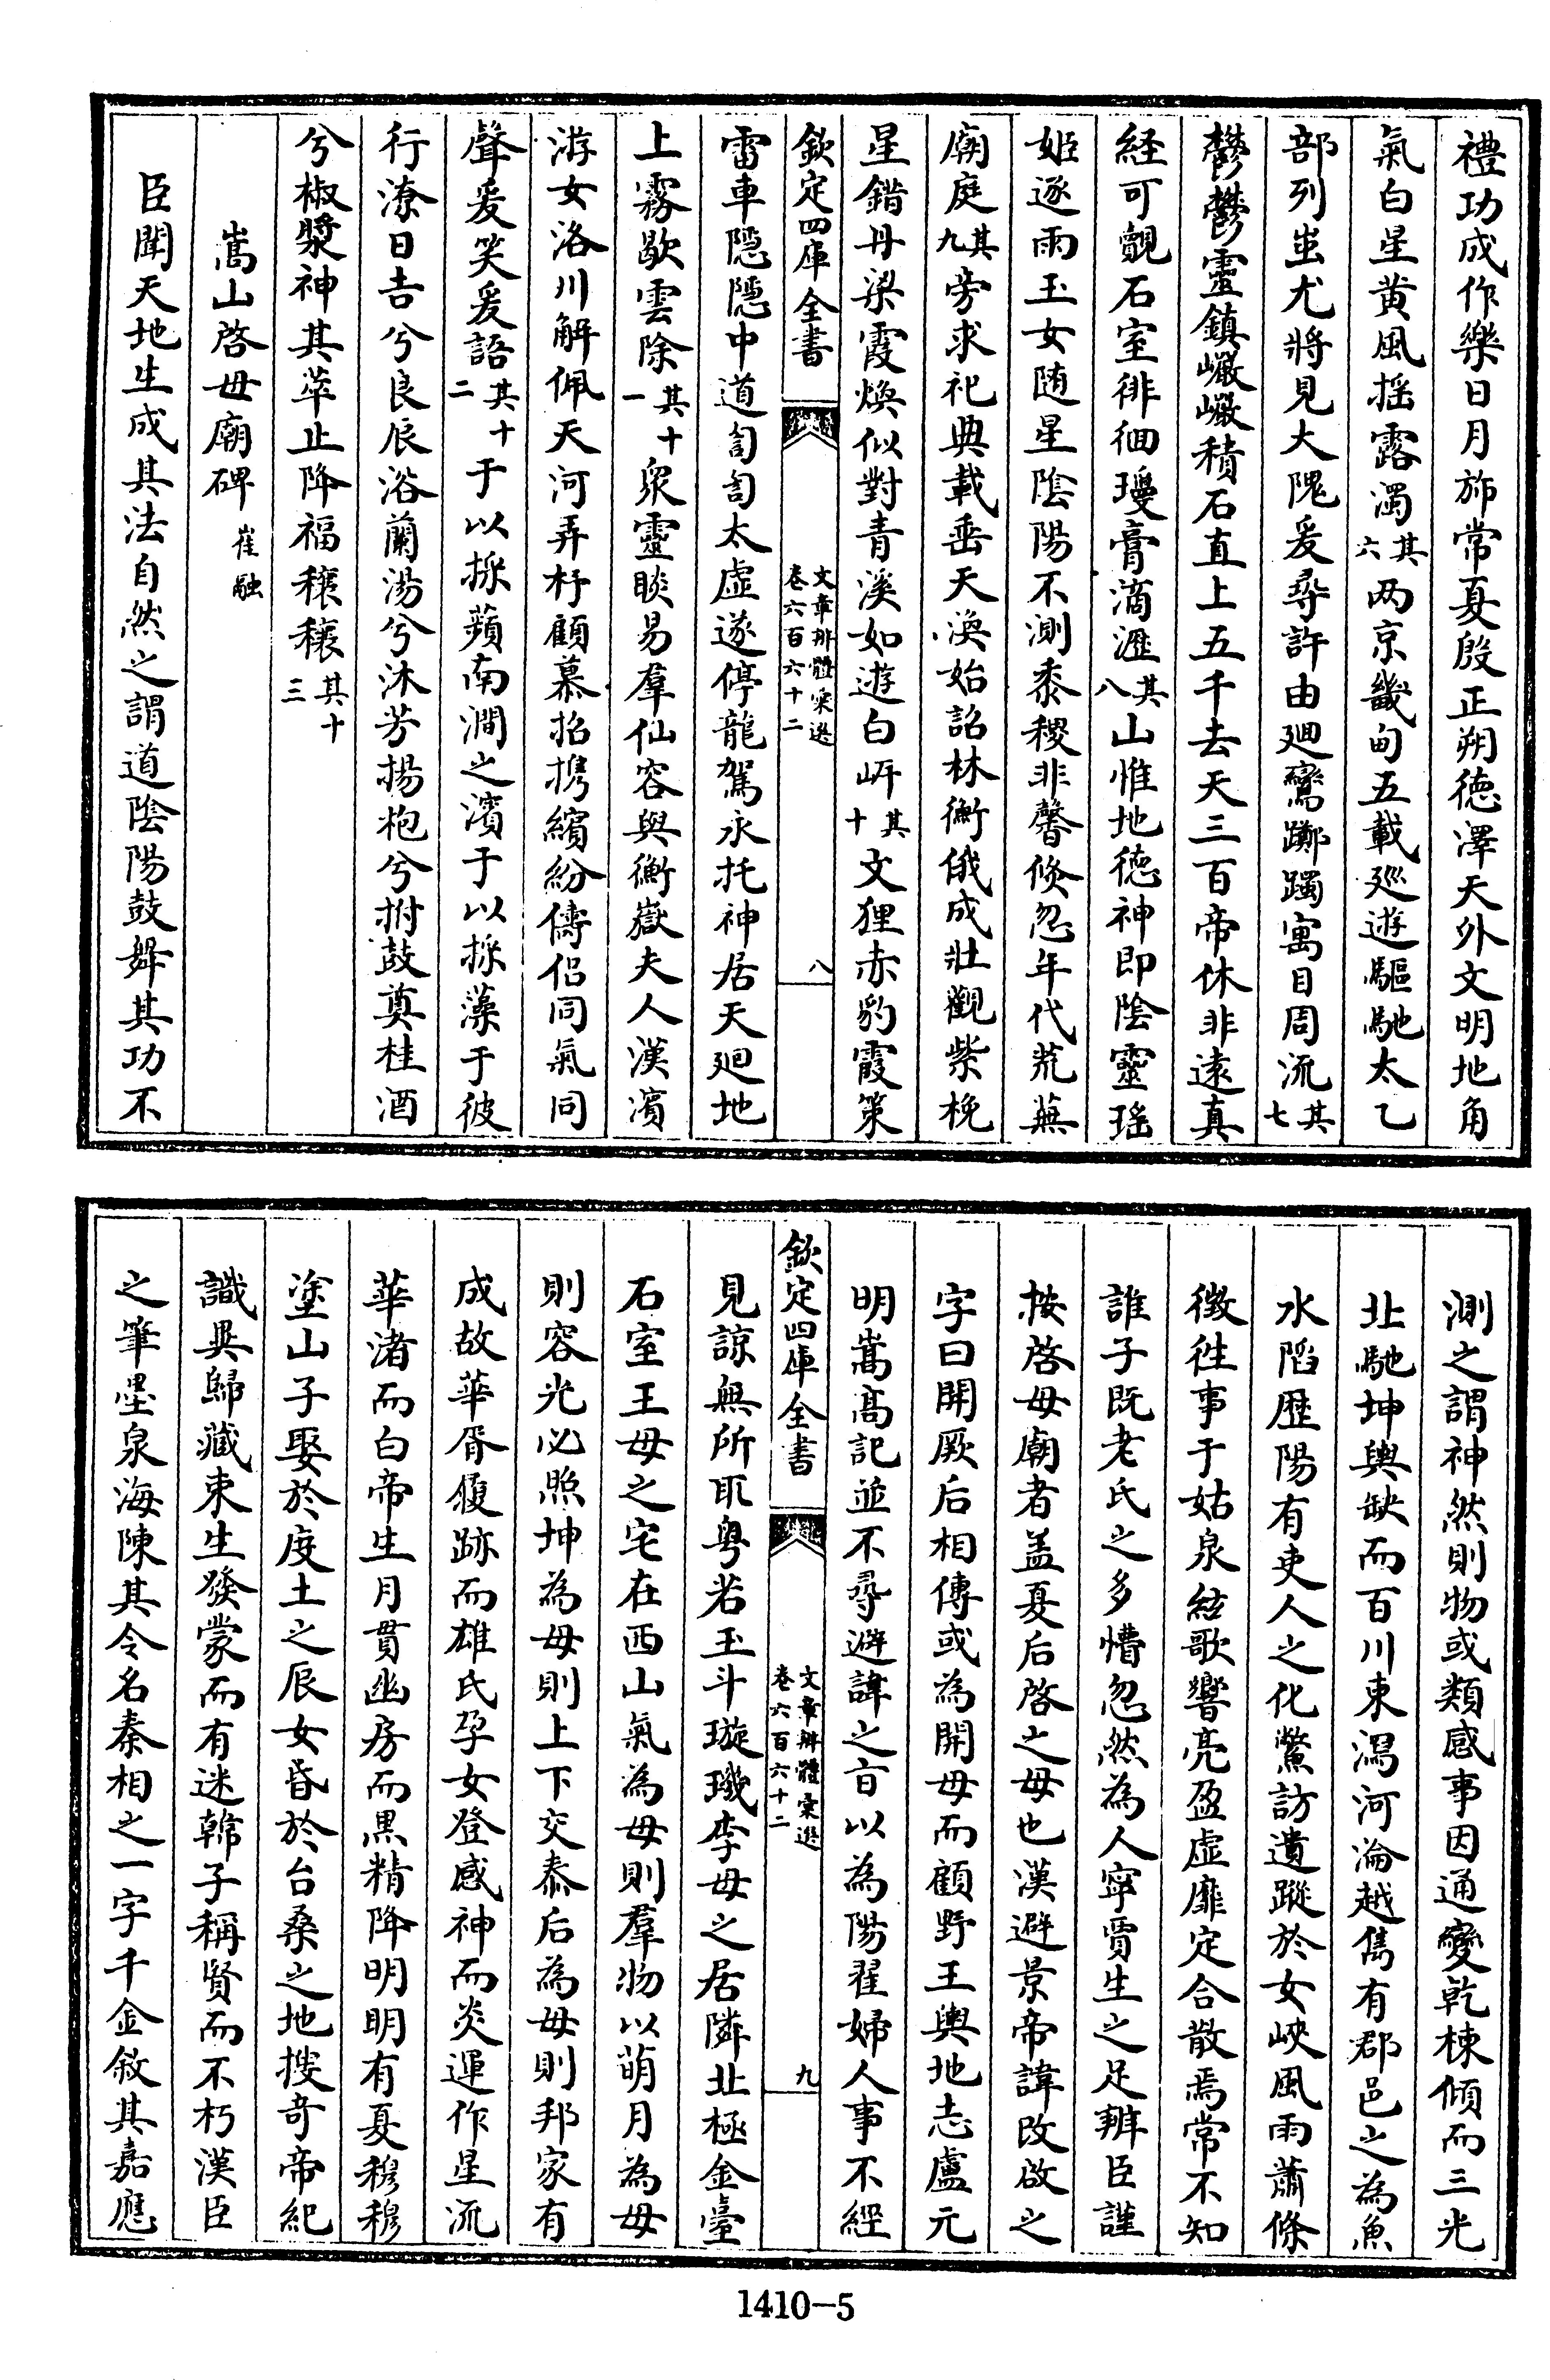 禮功成作樂日月斾常夏殷正朔德澤天外文明地角
氣白星黃風揺露濁其六两京畿甸五載廵遊驅馳太乙
部列蚩尤將見大隗爰尋許由廻鸞躑躅寓目周流其七
鬱鬱靈鎮巗巗積石直上五千去天三百帝休非遠真
經可覿石室徘徊璦膏滴瀝其八山惟地徳神即陰靈瑤
姬逐雨玉女随星陰陽不測黍稷非馨倐忽年代荒蕪
廟庭其九旁求祀典載垂天渙始詔林衡俄成壯觀紫桷
星錯丹梁霞煥似對青溪如遊白㟁其十文狸赤豹霞策
欽定四庫全書
文章辨體彚選
卷六百六十二
八
雷車隱隱中道訇訇太虚遂停龍駕永托神居天廻地
上霧歇雲除其十一衆靈睒易羣仙容與衡嶽夫人漢濱
游女洛川解佩天河弄杼顧慕招携繽紛儔侣同氣同
聲爰笑爰語其十二于以採蘋南澗之濱于以採藻于彼
行潦日吉兮良辰浴蘭湯兮沐芳揚枹兮拊鼓奠桂酒
兮椒漿神其萃止降福穰穰其十三
嵩山啓母廟碑 崔融
臣聞天地生成其法自然之謂道陰陽鼓舞其功不
測之謂神然則物或類感事因通變乾棟傾而三光
北馳坤輿缺而百川東瀉河淪越雋有郡邑之為魚
水陷歴陽有吏人之化鱉訪遺蹤於女峽風雨蕭條
徴徃事于姑泉絃歌響亮盈虚靡定合散焉常不知
誰子既老氏之多懵忽然為人寧賈生之足辨臣謹
按啓母廟者盖夏后啓之母也漢避景帝諱改啟之
字曰開厥后相傳或為開母而顧野王輿地志盧元
明嵩高記並不尋避諱之㫖以為陽翟婦人事不經
欽定四庫全書
文章辨體彚選
卷六百六十二
九
見諒無所取粤若玉斗璇璣李母之居隣北極金臺
石室王母之宅在西山氣為母則羣物以萌月為母
則容光必照坤為母則上下交泰后為母則邦家有
成故華胥履跡而雄氏孕女登感神而炎運作星流
華渚而白帝生月貫幽房而黒精降明明有夏穆穆
塗山子娶於度土之辰女昏於台桑之地搜竒帝紀
識異歸藏束生發蒙而有迷韓子稱賢而不朽漢臣
之筆墨泉海陳其令名秦相之一字千金敘其嘉應
1410—5